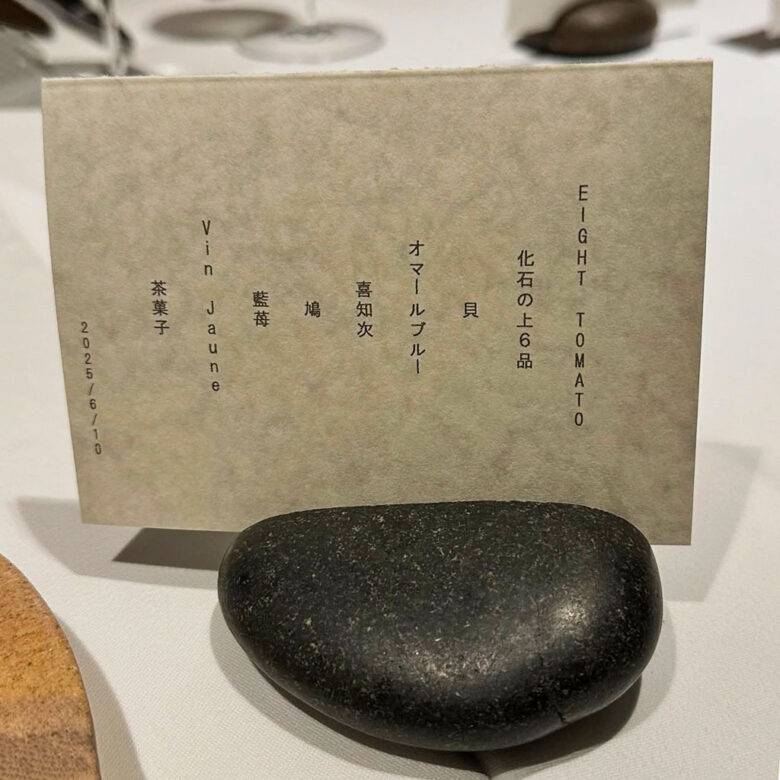 EIGHT TOMATO
化石の上6品
貝
オマールブルー
喜知次
鳩
藍苺
Vin Jaune
茶菓子
2025/6/10